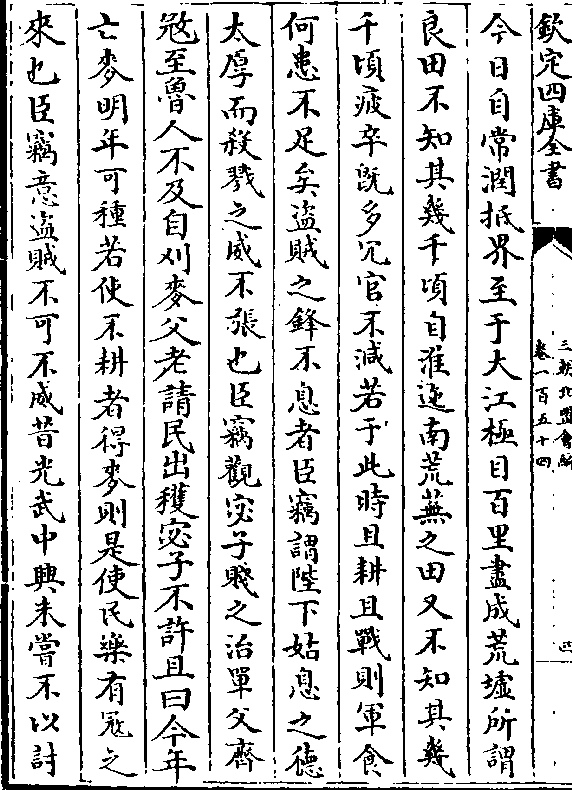 欽定四庫全書
三朝北盟會編
卷一百五十四
四
今日自常潤抵界至于大江極目百里盡成荒墟所謂
良田不知其幾千頃自淮迤南荒蕪之田又不知其幾
千頃疲卒既多冗官不減若于此時且耕且戰則軍食
何患不足矣盜賊之鋒不息者臣竊謂陛下姑息之德
太厚而殺戮之威不張也臣竊觀宓子賤之治單父齊
㓂至魯人不及自刈麥父老請民出穫宓子不許且曰今年
亡麥明年可種若使不耕者得麥則是使民樂有冦之
來也臣竊意盜賊不可不威昔光武中興未嘗不以討